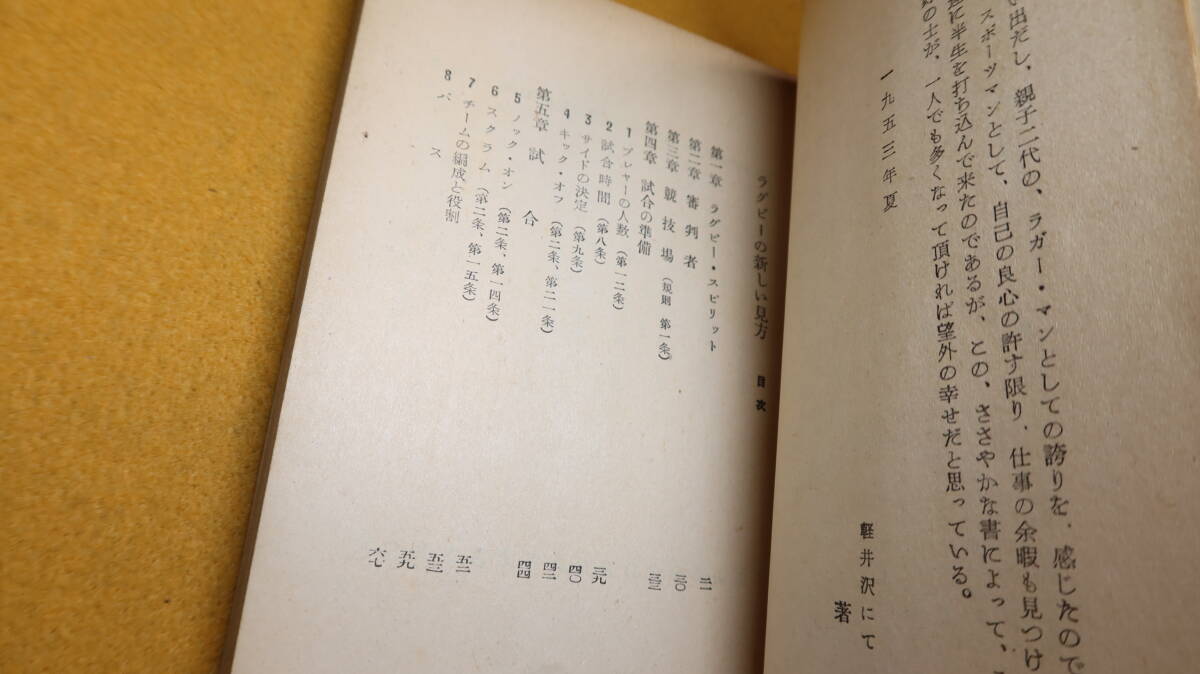 い出だし、親子二代の、ラガー・マンとしての誇りを、感じたので
スポーツマンとして、自己の良心の許す限り、仕事の余暇も見つけ
に半生を打ち込んで来たのであるが、この、ささやかな書によって、
の士が、一人でも多くなって頂ければ望外の幸せだと思っている。
一九五三年夏
軽井沢にて
著
ラグビーの新しい見方 目次
第一章 ラグビー・スピリット 二一
第二章 審判者 三〇
第三章 競技場(規則 第一条) 三三
第四章 試合の準備
1 プレヤーの人数(第一二条) 三九
2 試合時間(第八条) 四〇
3 サイドの決定(第九条) 四二
4 キック・オフ(第二条、第二一条) 四四
第五章 試合
5 ノック・オン(第二条、第一四条) 五二
6 スクラム(第二条、第一五条) 五三
7 チームの編成と役割 五九
8 パス 六七